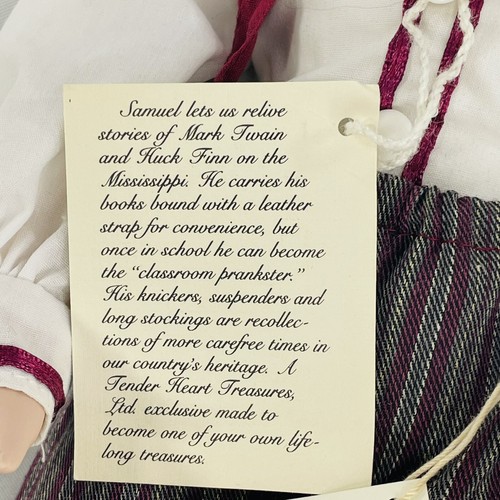 Samuel lets us relive
stories of Mark Twain
and Huck Finn on the
Mississippi. He carries his
books bound with a leather
strap for convenience, but
once in school he can become
the “classroom prankster.”
His knickers, suspenders and
long stockings are recollec-
tions of more carefree times in
our country's heritage. A
Tender Heart Treasures,
Ltd. exclusive made to
become one of your own life-
long treasures.